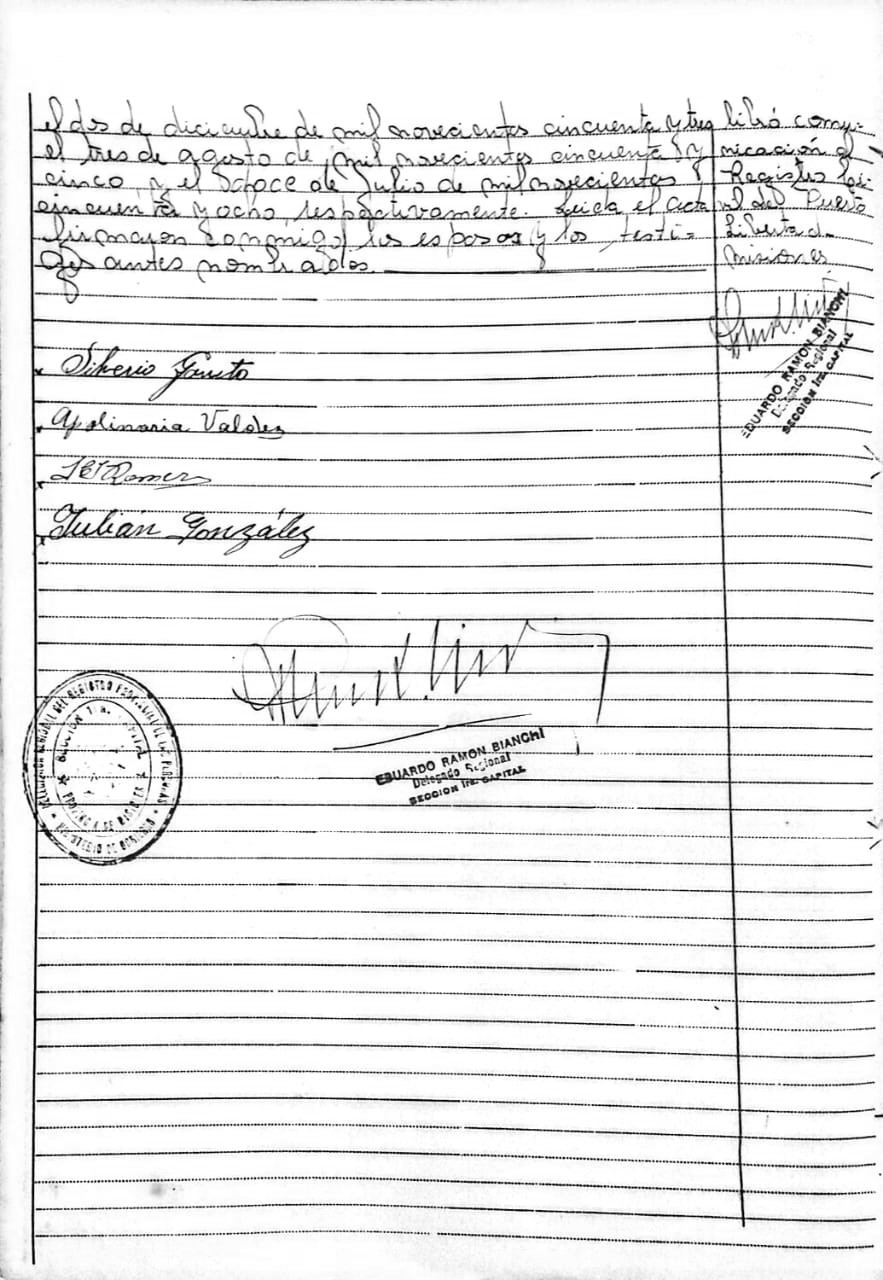 el dos de diciembre de mil novecientos cincuenta y tres
el tres de agosto de mil novecientos cincuenta y
cinco, y el doce de Julio de mil novecientos
cincuenta y ocho respectivamente. Leida el acta
firmaron conmigo los esposos y los testi-
gos antes nombrados.
libró comu-
nicación al
Registro Ci-
vil del Puerto
Libertad
Misiones
EDUARDO RAMON BIANCHI
Delegado Regional
SECCION 1ra. CAPITAL
Silverio Fausto
Apolinaria Valdez
Romero
Julián González
EDUARDO RAMON BIANCHI
Delegado Regional
SECCION 1ra. CAPITAL
DELEGACION REGIONAL DEL REGISTRO PROVINCIAL DE LAS PERSONAS
SECCION 1ra. CAPITAL
PROVINCIA DE MISIONES
MINISTERIO DE GOBIERNO